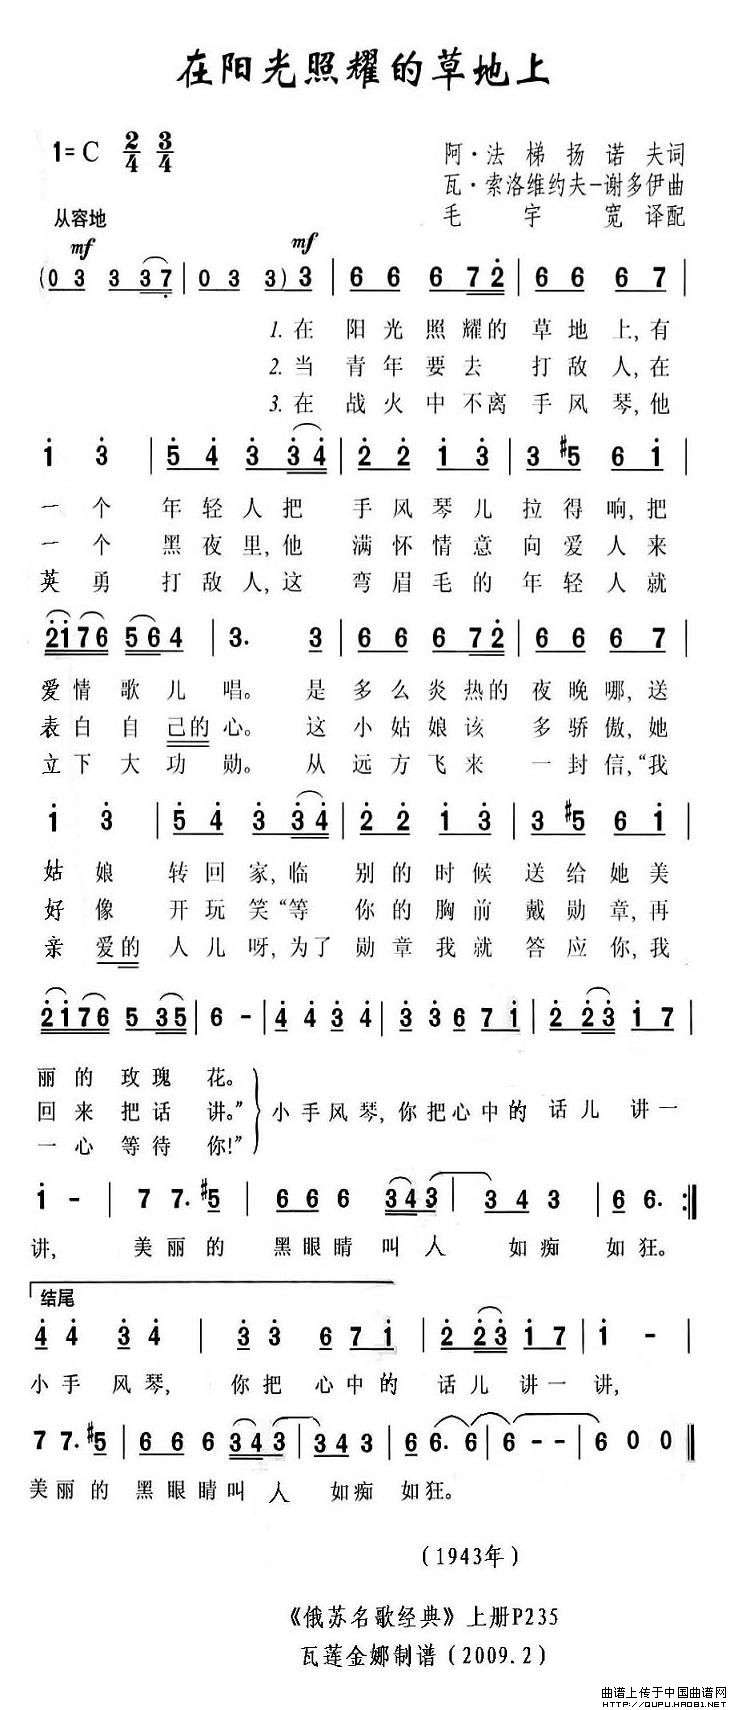 在阳光照耀的草地上
1=C 2/4 3/4
阿·法梯扬诺夫词
瓦·索洛维约夫-谢多伊曲
毛宇宽译配
从容地
mf mf
(0 3 3 3 7 | 0 3 3) 3 | 6 6 6 7 2 | 6 6 6 7 |
1. 在 阳光照耀的草地上,有
2. 当 青年要去 打敌人,在
3. 在 战火中不离手风琴,他
1 3 | 5 4 3 3 4 | 2 2 1 3 | 3 #5 6 1 |
一个 年轻人把 手风琴儿 拉得响,把
一个 黑夜里,他 满怀情意 向爱人来
英勇 打敌人,这 弯眉毛的 年轻人就
2 1 7 6 5 6 4 | 3. 3 | 6 6 6 7 2 | 6 6 6 7 |
爱情歌儿唱。 是 多么炎热的夜晚哪,送
表白自己的心。 这 小姑娘该 多骄傲,她
立下大功勋。 从 远方飞来 一封信,“我
1 3 | 5 4 3 3 4 | 2 2 1 3 | 3 #5 6 1 |
姑娘 转回家,临 别的时候 送给她美
好像 开玩笑“等 你的胸前 戴勋章,再
亲爱的 人儿呀,为了 勋章我就 答应你,我
2 1 7 6 5 3 5 | 6 - | 4 4 3 4 | 3 3 6 7 1 | 2 2 3 1 7 |
丽的玫瑰花。
回来把话讲。” 小手风琴,你把心中的 话儿 讲一
一心等待你!”
1 - | 7 7. #5 | 6 6 6 3 4 3 | 3 4 3 | 6 6. :||
讲, 美丽的 黑眼睛叫人 如痴 如狂。
结尾
4 4 3 4 | 3 3 6 7 1 | 2 2 3 1 7 | 1 - |
小手风琴, 你把心中的 话儿讲一讲,
7 7. #5 | 6 6 6 3 4 3 | 3 4 3 | 6 6. 6 | 6 - - | 6 0 0 ||
美丽的 黑眼睛叫人 如痴 如狂。
(1943年)
《俄苏名歌经典》上册P235
瓦莲金娜制谱(2009.2)
曲谱上传于中国曲谱网
http://QUPU.HAO81.NET